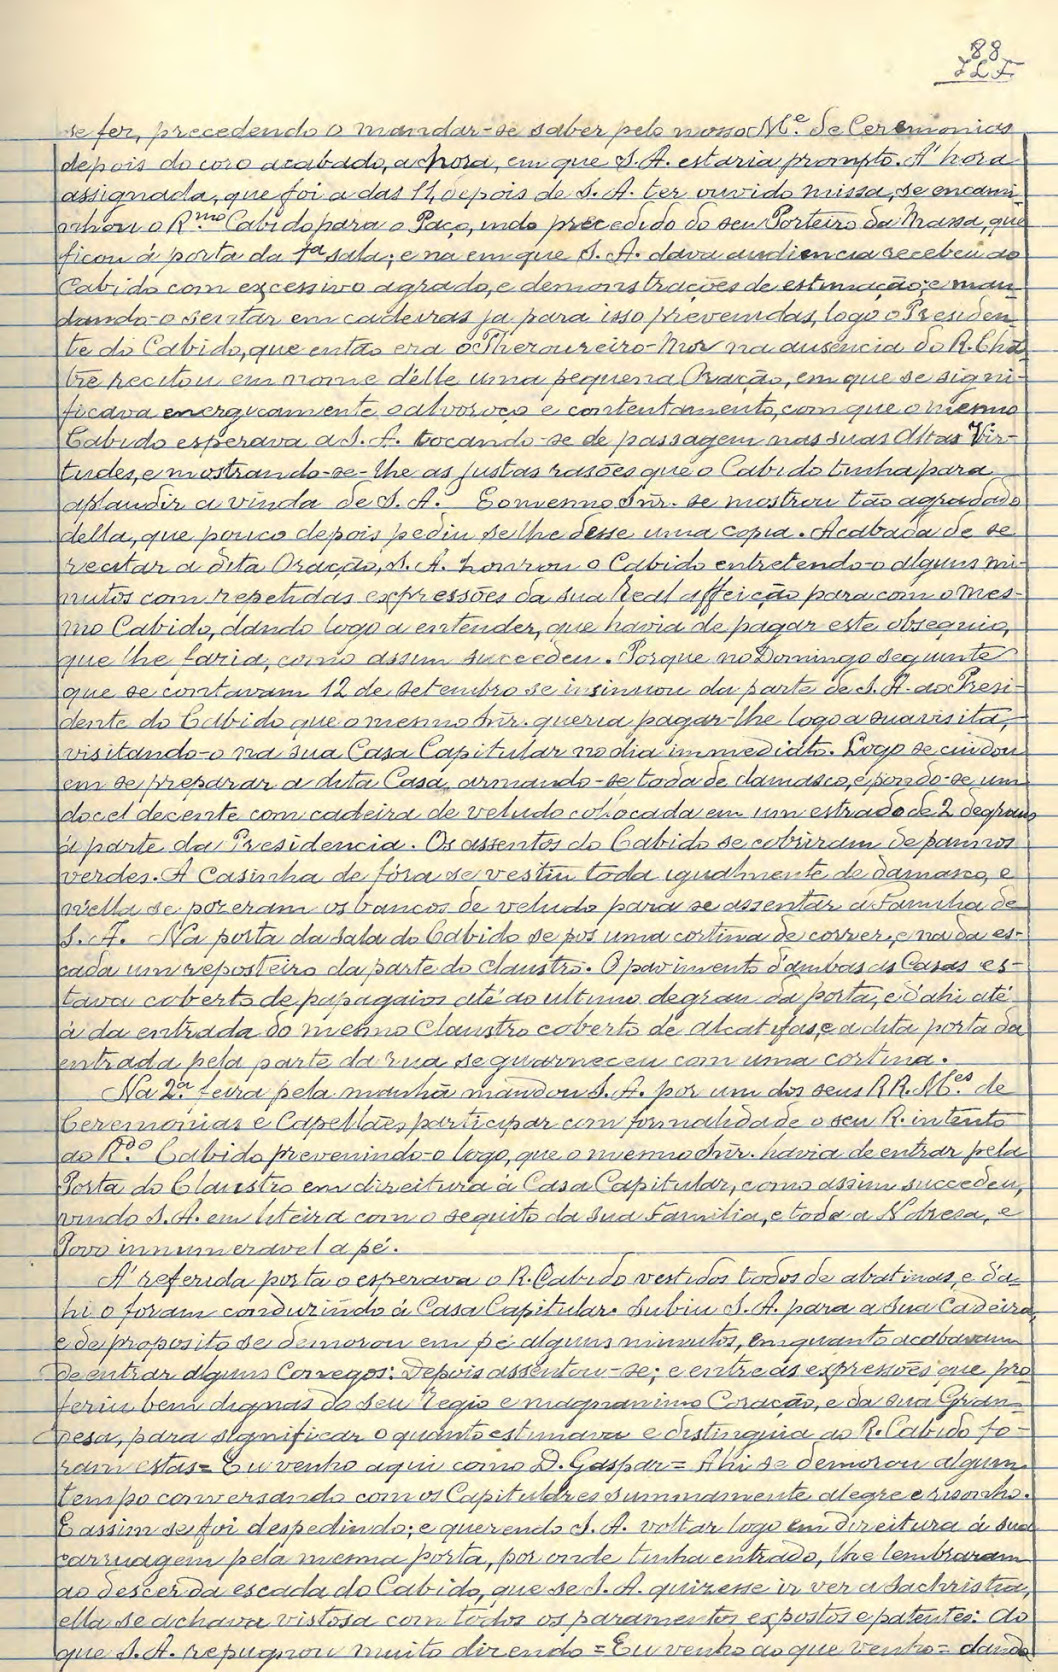 88
se fez, precedendo o mandar-se saber pelo nosso M.e de Ceremonias
depois do coro acabado, a hora, em que S. A. estaria prompto. A' hora
assignada, que foi a das 11, depois de S. A. ter ouvido missa, se encami-
nhou o R.mo Cabido para o Paço, indo precedido do seu Porteiro da Massa, que
ficou á porta da 1ª sala; e na em que S. A. dava audiencia recebeu ao
Cabido com excessivo agrado, e demonstrações de estimação; e man-
dando-o sentar em cadeiras ja para isso prevenidas, logo o Presiden-
te do Cabido, que então era o Thezoureiro-Mor na ausencia do R. Chan-
tre recitou em nome d'elle uma pequena Oração, em que se signi-
ficava energicamente o alvoroço e contentamento, com que o mesmo
Cabido esperava a S. A. tocando-se de passagem nas suas Altas Vir-
tudes, e mostrando-se-lhe as justas rasões que o Cabido tinha para
aplaudir a vinda de S. A. E o mesmo Snr. se mostrou tão agradado
della, que pouco depois pediu se lhe désse uma copia. Acabada de se
recitar a dita Oração, S. A. honrou o Cabido entretendo-o alguns mi-
nutos com repetidas expressões da sua Real affeição para com o mes-
mo Cabido, dando logo a entender, que havia de pagar este obsequio,
que lhe fazia, como assim succedeu. Porque no Domingo seguinte
que se contavam 12 de setembro se insinuou da parte de S. A. ao Presi-
dente do Cabido que o mesmo Snr. queria pagar-lhe logo a sua visita,
visitando-o na sua Casa Capitular no dia immediato. Logo se cuidou
em se preparar a dita Casa, armando-se toda de damasco, e pondo-se um
docel decente com cadeira de veludo collocada em um estrado de 2 degraus
á parte da Presidencia. Os assentos do Cabido se cobriram de pannos
verdes. A Casinha de fóra se vestiu toda igualmente de damasco, e
n'ella se pozeram os bancos de veludo para se assentar a Familia de
S. A. Na porta da sala do Cabido se pôs uma cortina de correr, e na da es-
cada um reposteiro da parte do claustro. O pavimento d'ambas as Casas es-
tava coberto de papagaios até ao ultimo degrau da porta, e d'ahi até
á da entrada do mesmo Claustro coberto de alcatifas, e a dita porta da
entrada pela parte da rua se guarneceu com uma cortina.
Na 2.ª feira pela manhã mandou S. A. por um dos seus RR. M.es de
Ceremonias e Capellães participar com formalidade o seu R. intento
ao R.do Cabido prevenindo-o logo, que o mesmo Snr. havia de entrar pela
Porta do Claustro em direitura á Casa Capitular, como assim succedeu,
vindo S. A. em liteira com o sequito da sua Familia, e toda a Nobresa, e
Povo innumeravel a pé.
A' referida porta o esperava o R. Cabido vestidos todos de abatinas, e d'a-
hi o foram conduzindo á Casa Capitular. Subiu S. A. para a sua Cadeira,
e de proposito se demorou em pé alguns minutos, emquanto acabavam
de entrar alguns Conegos: Depois assentou-se; e entre as expressões que pro-
feriu bem dignas do seu Regio e magnanimo Coração, e da sua Gran-
desa, para significar o quanto estimava e distinguia ao R. Cabido fo-
ram estas = Eu venho aqui como D. Gaspar = Ahi se demorou algum
tempo conversando com os Capitulares summamente alegre e risonho.
E assim se foi despedindo; e querendo S. A. voltar logo em direitura á sua
carruagem pela mesma porta, por onde tinha entrado, lhe lembraram
ao descer da escada do Cabido, que se S. A. quizesse ir ver a Sachristia,
ella se achava vistosa com todos os paramentos expostos e patentes: ao
que S. A. repugnou muito dizendo = Eu venho ao que venho = dando